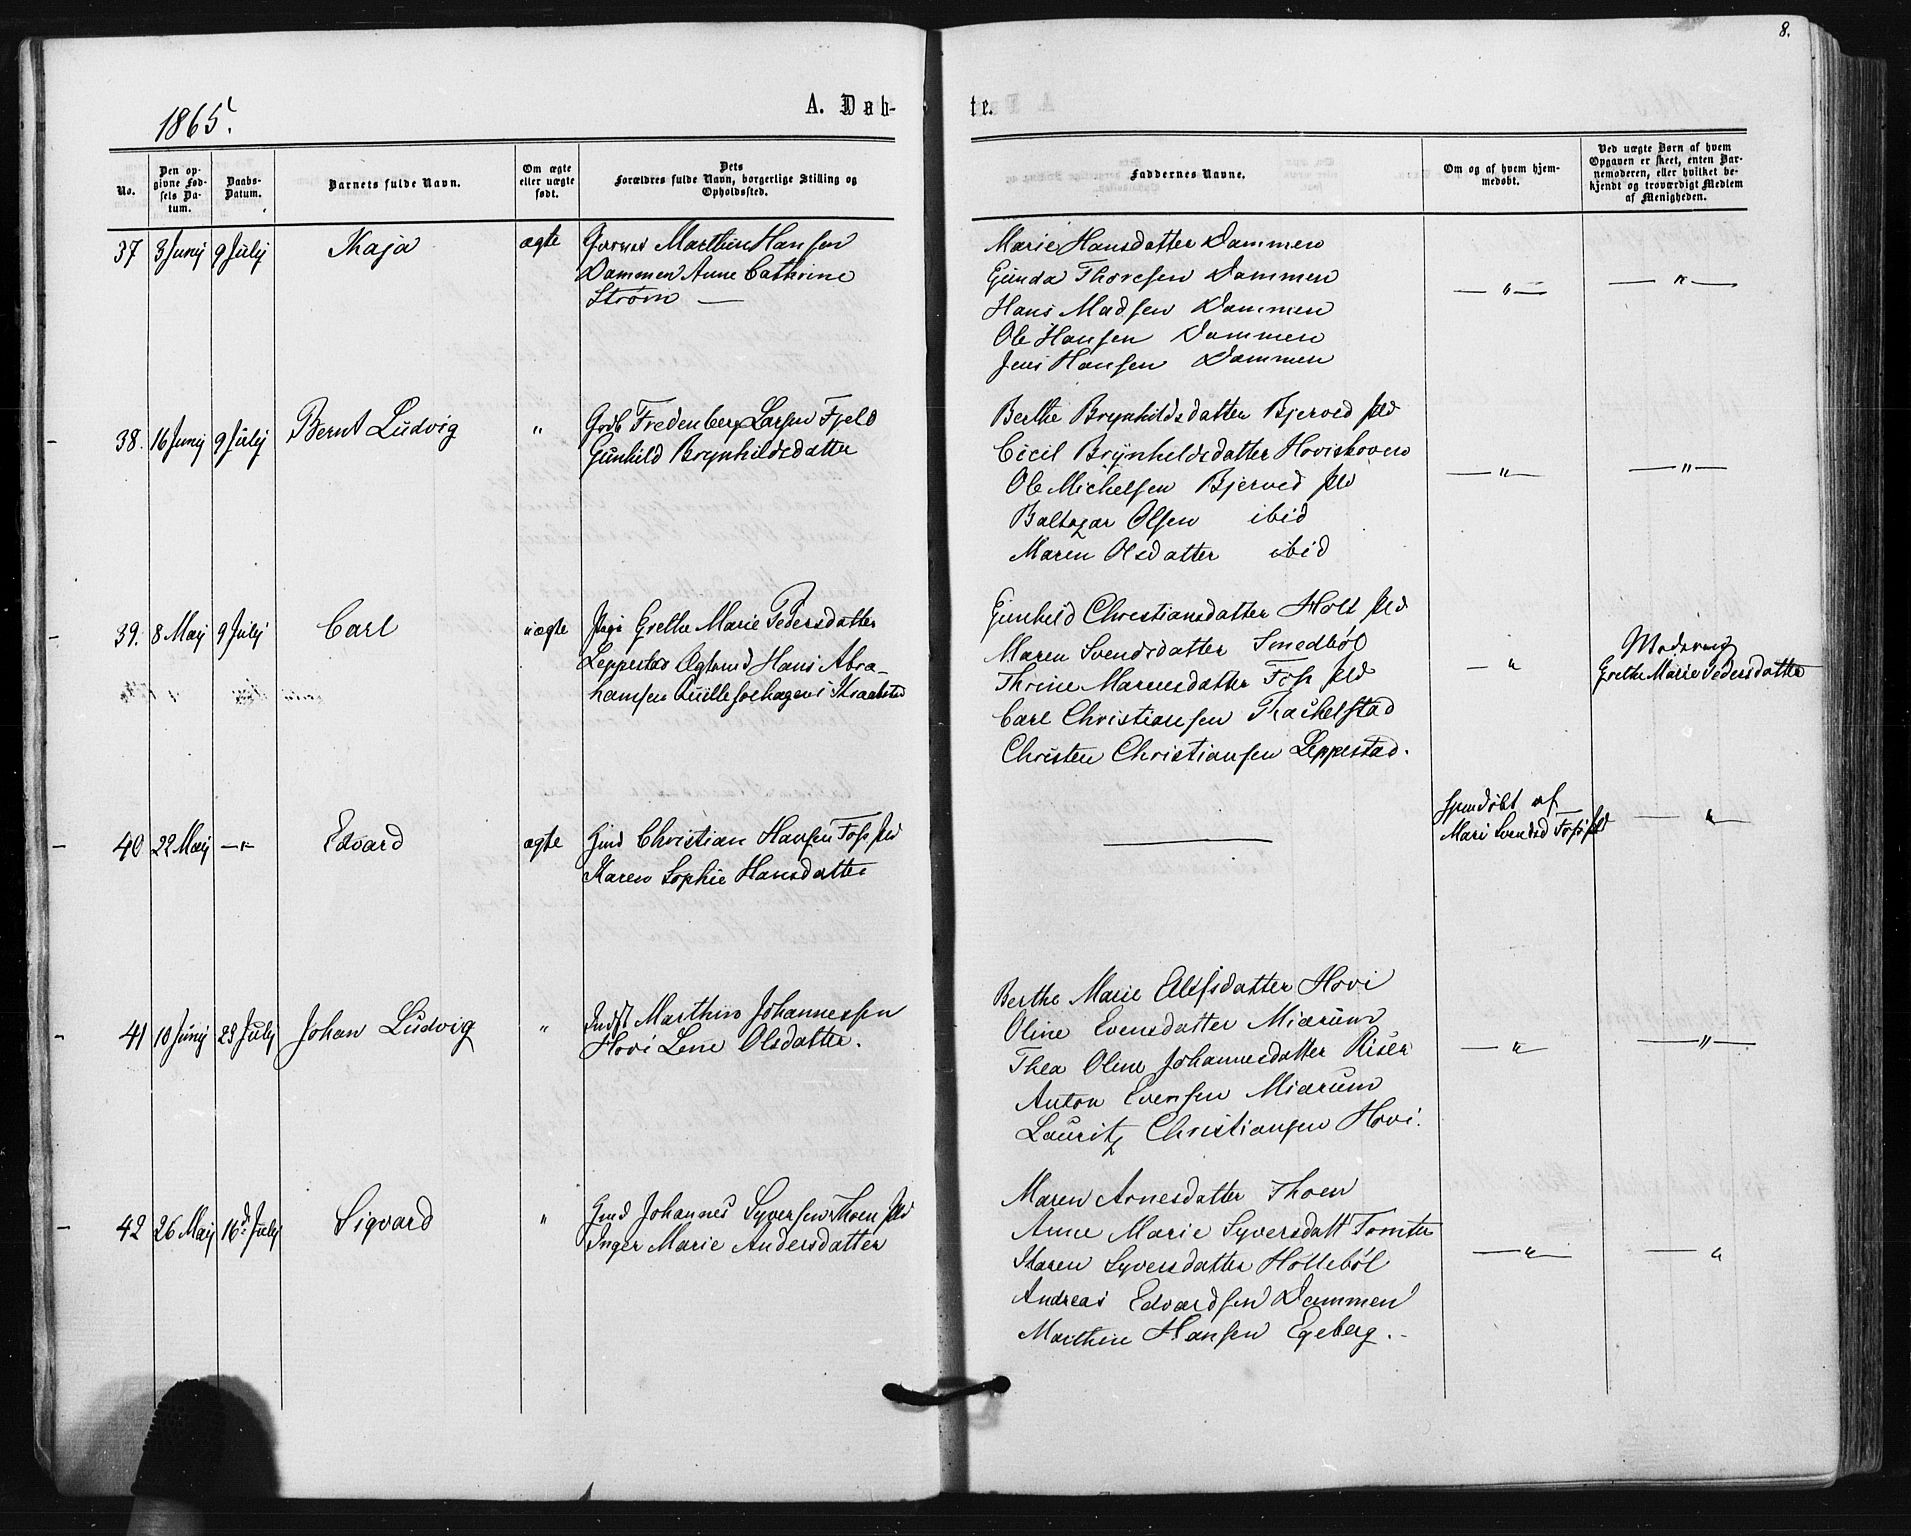 8.
1865.
A. Døb-
te.
No.
Den op-
givne Fød-
sels Da-
tum.
Daabs-
Datum.
Barnets fulde Navn.
Om ægte
eller uægte
født.
Dets
Forældres fulde Navn, borgerlige Stilling og
Opholdssted.
Faddernes Navne.
Om og af hvem hjem-
medøbt.
Ved uægte Børn af hvem
Opgaven er skeet, enten Bar-
nemoderen, eller hvilket be-
kjendt og troværdigt Medlem
af Menigheden.
37 3 Junij 9 Julij Kaja ægte
Marthin Hansen
Dammen Anne Cathrine
Strøm —
Marie Hansdatter Dammen
Gunda Thoresen Dammen
Hans Madsen Dammen
Ole Hansen Dammen
Jens Hansen Dammen
— " —
— " —
38. 16 Junij 9 Julij Bernt Ludvig "
Gdb Fredenberg Larsen Fjeld
Gunhild Brynhildsdatter
Berthe Brynhildsdatter Bjerved
Cicil Brynhildsdatter Hovishoven
Ole Michelsen Bjerved
Baltazar Olsen ibid
Maren Olsdatter ibid
— " —
— " —
39. 8 Maij 9 Julij Carl uægte
Pige Grethe Marie Pedersdatter
Leppestad Hans Abra-
hamsen i Kraakstad
Gunhild Christiansdatter Holt
Maren Svendsdatter Smedbøl
Thrine Mareusdatter Foss
Carl Christiansen Trachelstad
Christen Christiansen Leppestad.
— "
Moderen
Grethe Marie Pedersdatter
40 22 Maij — " — Edvard ægte
Gmd Christian Hansen Foss
Karen Sophie Hansdatter
—
hjemdøbt af
Mari Svendsd Foss
— "
41 10 Junij 23 Julij Johan Ludvig "
Indst Marthin Johannessen
Hovi Lene Olsdatter.
Berthe Marie Elefsdatter Hovi
Oline Evensdatter Miarum
Thea Oline Johannesdatter Riser
Anton Evensen Miarum
Lauritz Christiansen Hovi.
— " —
— " —
42 26 Maij 16de Julij Sigvard "
Gmd Johannes Syversen Thoen
Inger Marie Andersdatter
Maren Arnesdatter Thoen
Anne Marie Syversdatt Tomter
Karen Syversdatter Høllebøl
Andreas Edvardsen Dammen
Marthin Hansen Egeberg. -
— " —
— "